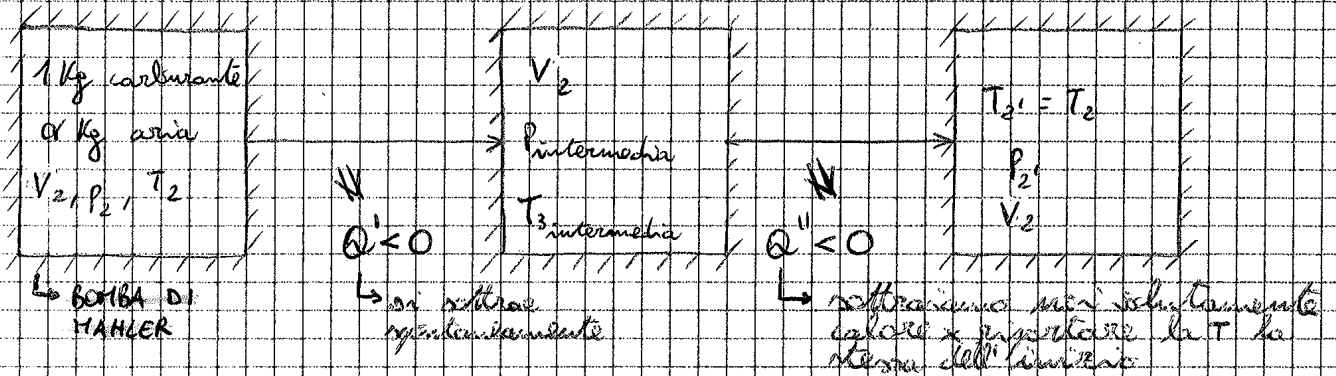 1 Kg carburante
α Kg aria
V₂, P₂, T₂
BOMBA DI
MAHLER
Q' < 0
si sottrae
spontaneamente
V₂
Pintermedia
T₃ intermedia
Q'' < 0
sottraiamo noi volutamente
calore x riportare la T la
stessa dell'inizio
T₂' = T₂
P₂'
V₂